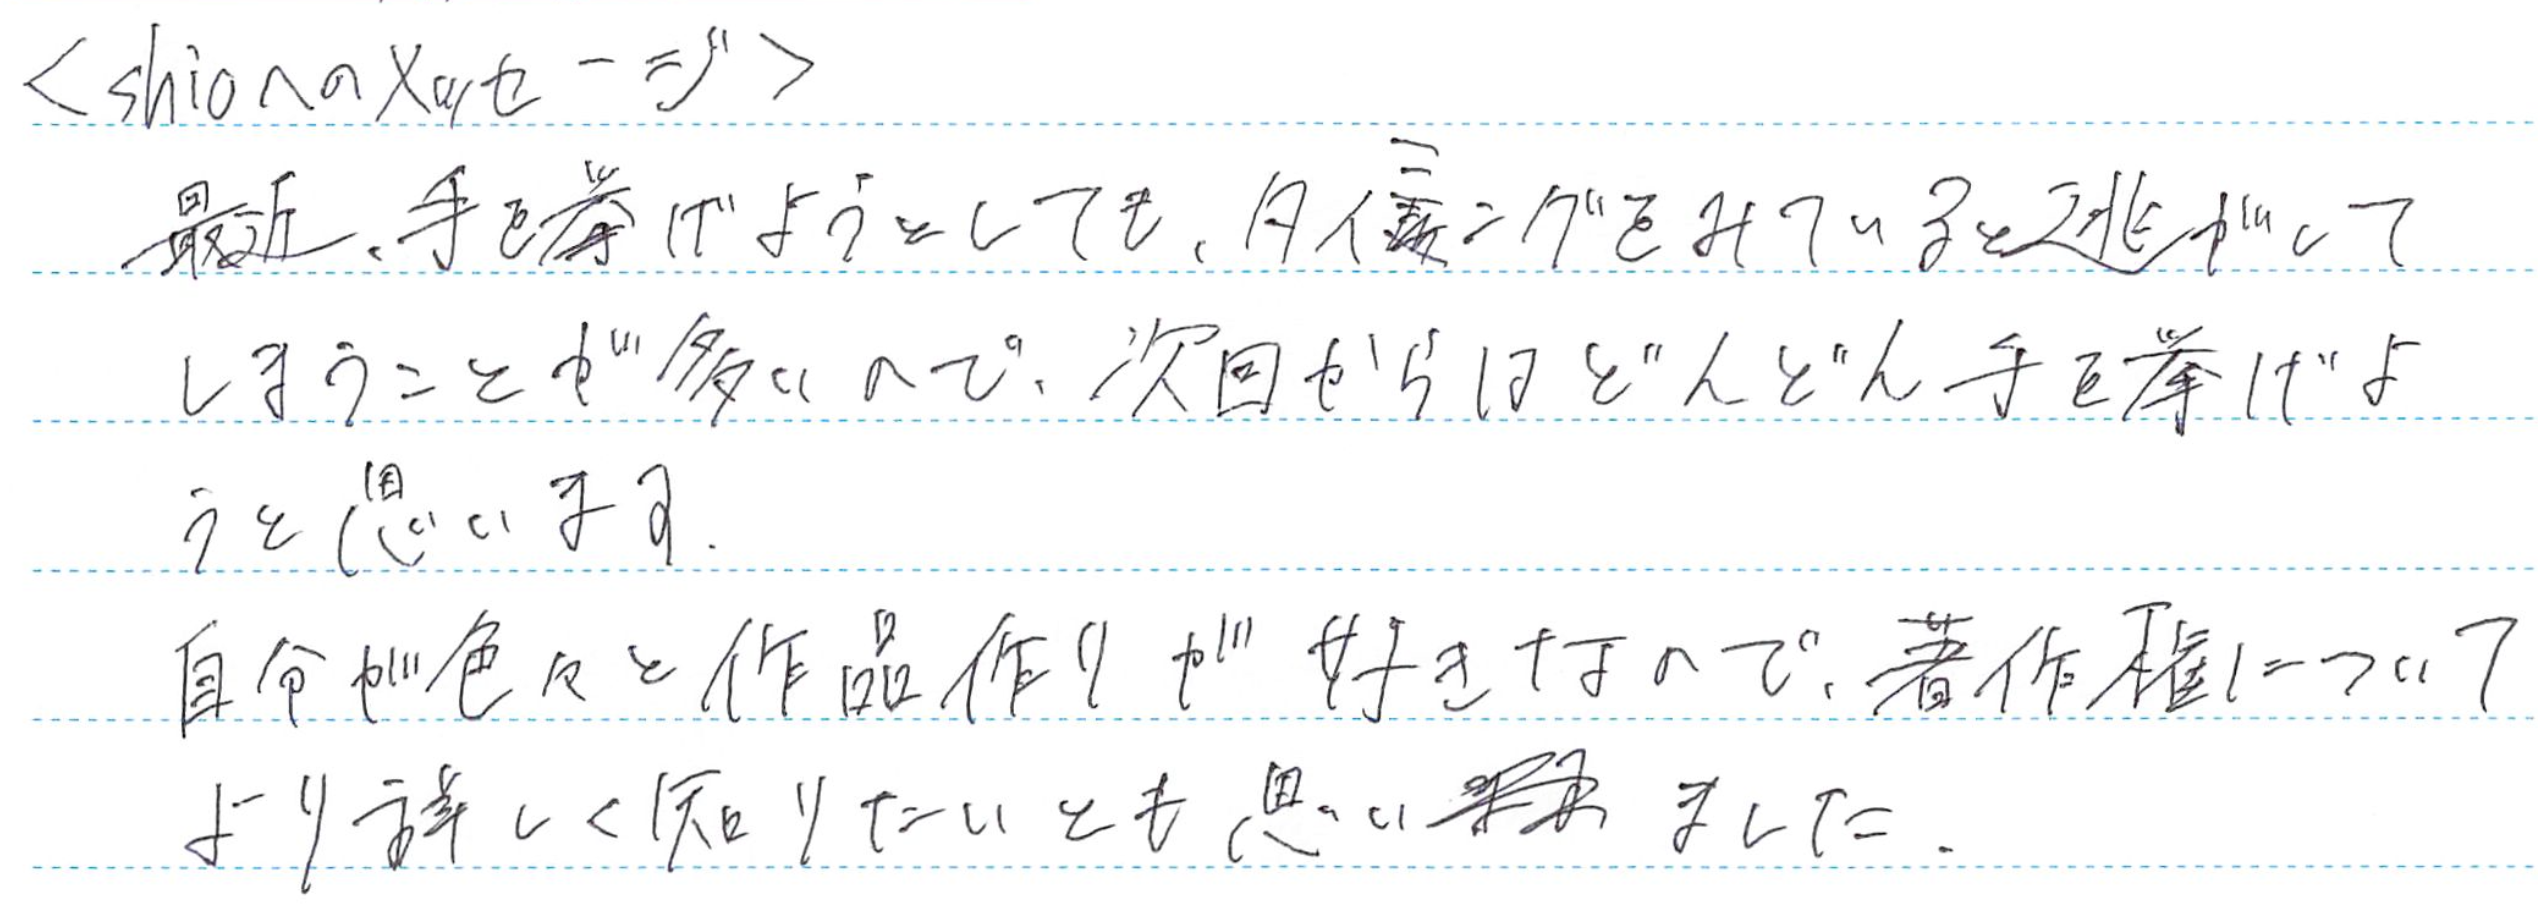 <shioへのメッセージ>
最近、手を挙げようとしても、タイミングをみていると逃がして
しまうことが多いので、次回からはどんどん手を挙げよ
うと思います.
自分が色々と作品作りが好きなので、著作権について
より詳しく知りたいとも思いました.